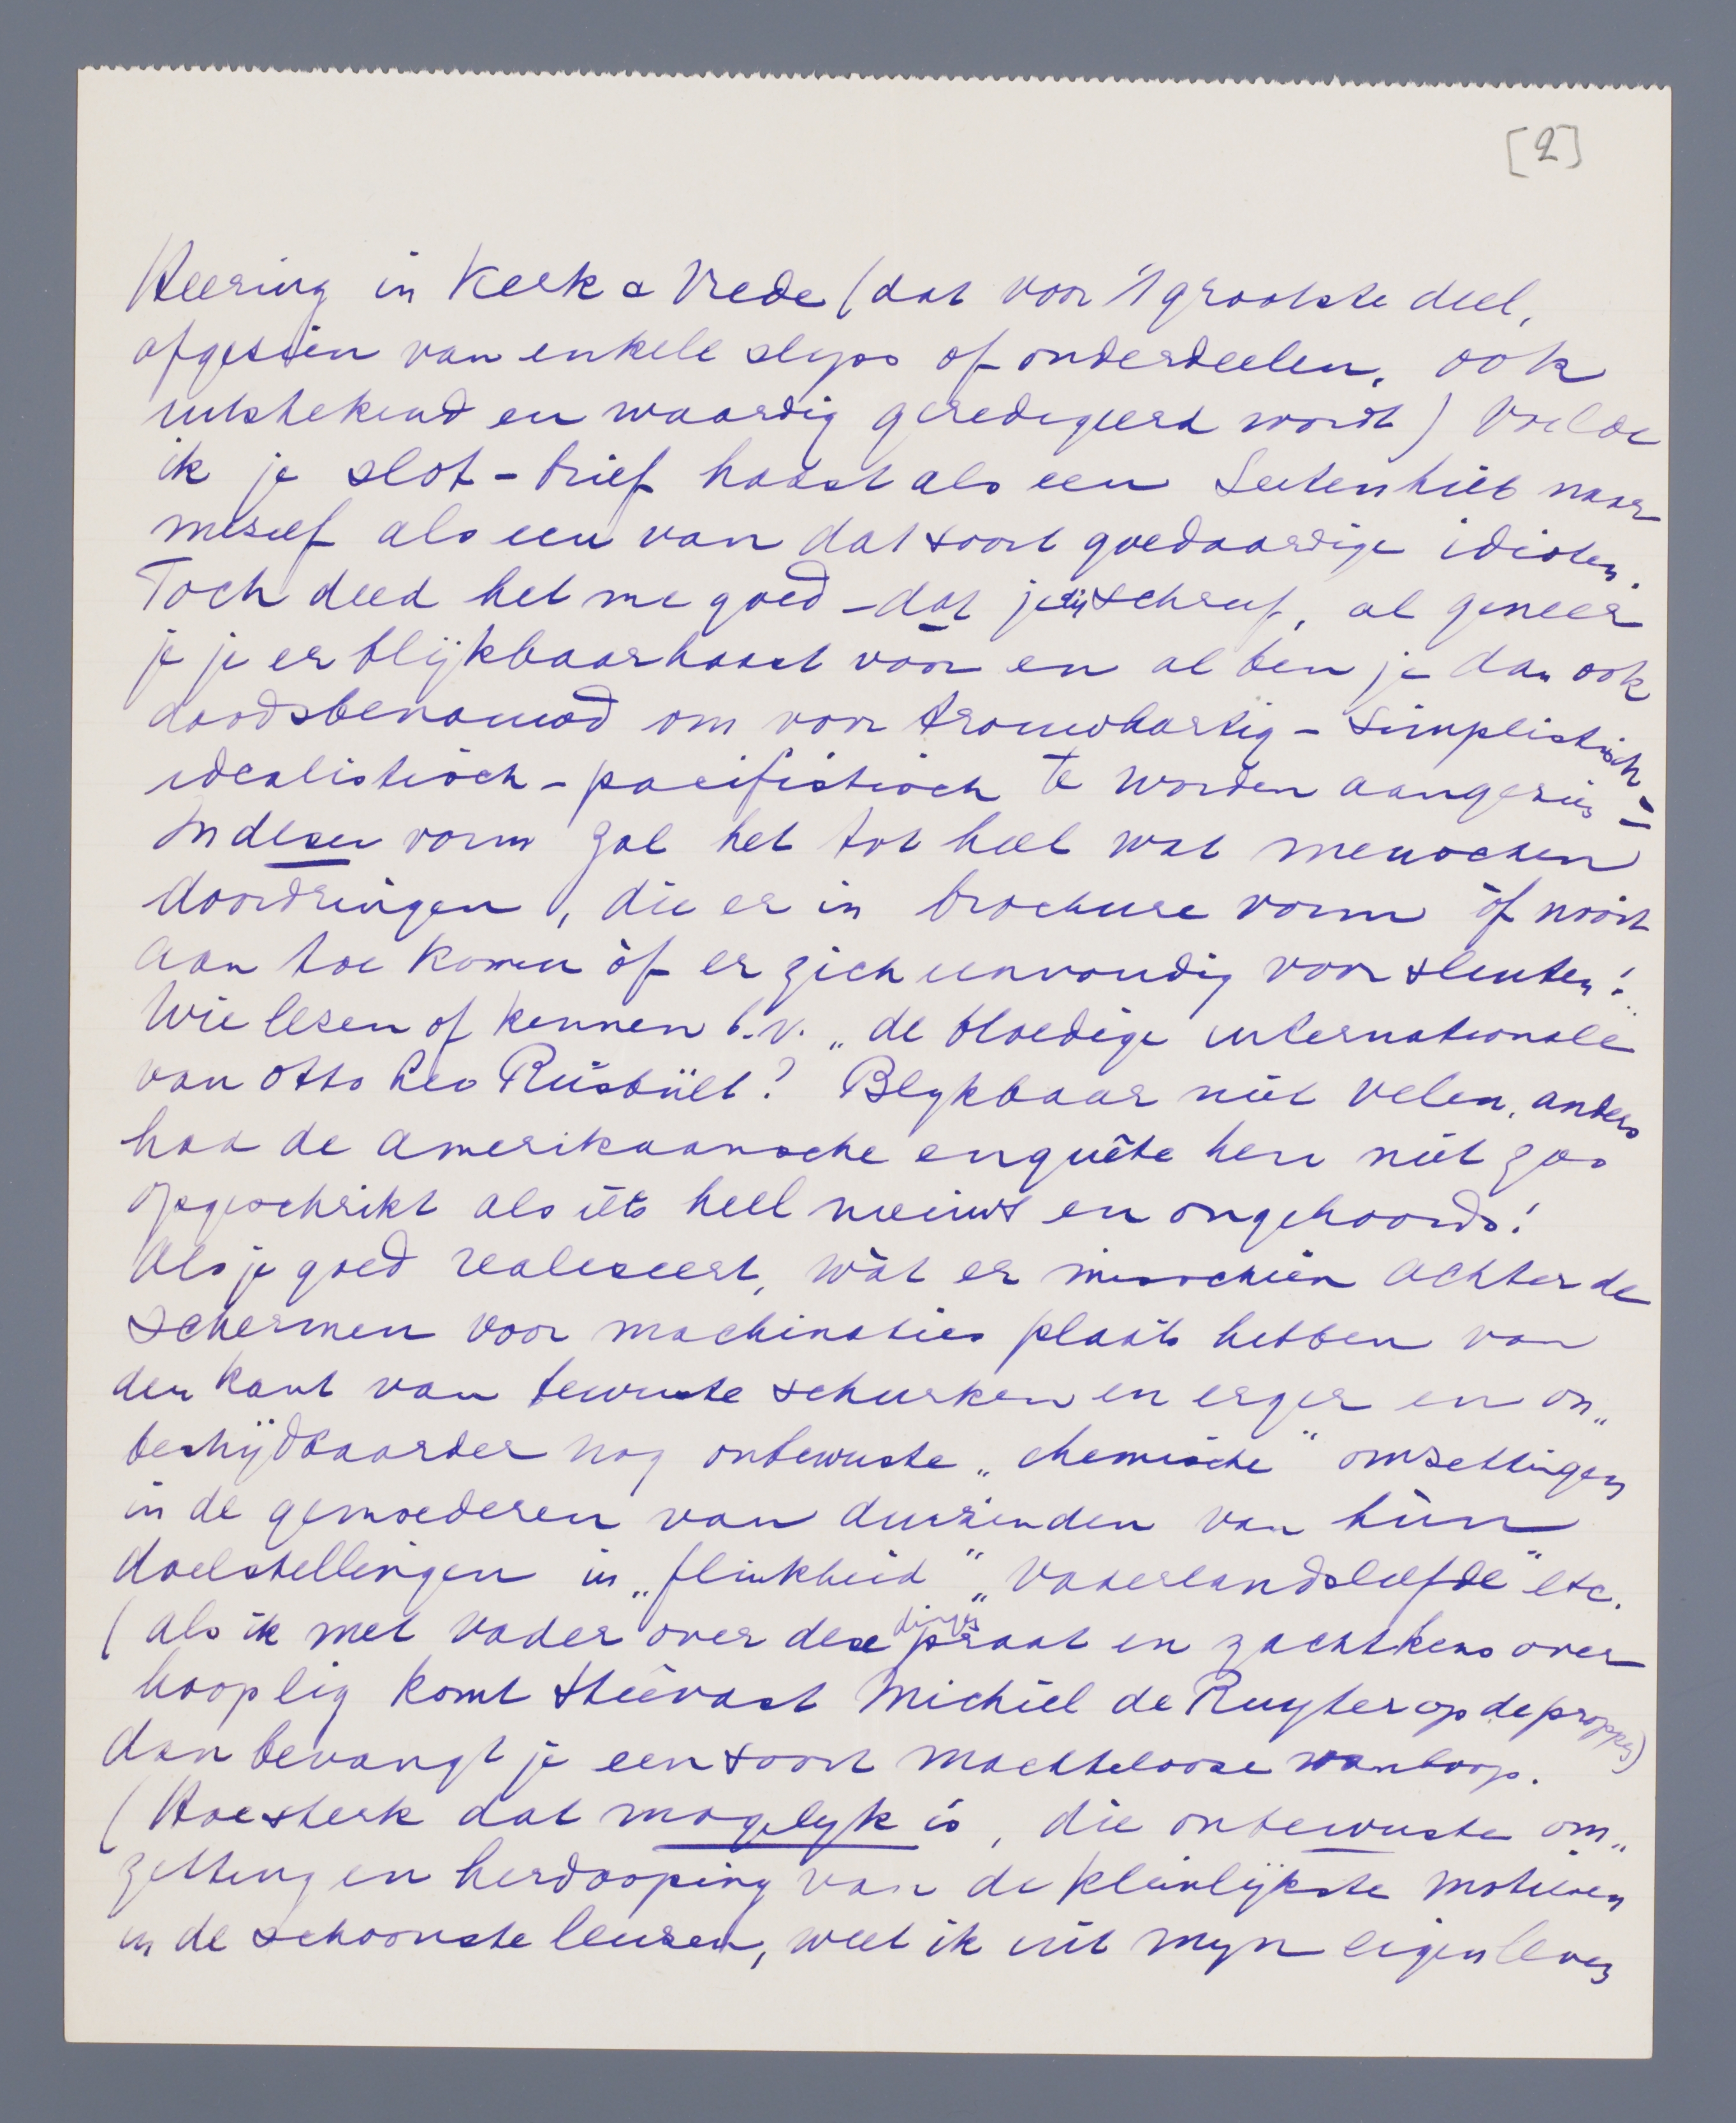 [2]
Heering in Kerk & Vrede (dat voor 't grootste deel,
afgezien van enkele slyps of onderdeelen, ook
uitstekend en waardig geredigeerd wordt) voelde
ik je slot-brief haast als een Seitenhieb naar
mezelf als een van dat soort goedaardige idioten.
Toch deed het me goed – dat je zij schreef, al geneer
je je er blijkbaar haast voor en al ben je dan ook
doodsbenauwd om voor trouwhartig – simplistisch –
idealistisch – pacifistisch te worden aangezien –
In dezen vorm zal het tot heel wat menschen
doordringen, die er in brochure vorm òf nooit
aan toe komen òf er zich eenvoudig voor sluiten!
Wie lezen of kennen b.v. „de bloedige internationale"
van Otto Leo Rüsbült? Blykbaar niet velen, anders
had de Amerikaansche enquête hen niet zoo
opgeschrikt als iets heel nieuws en ongehoords!
Als je goed realiseert, wàt er misschien achter de
schermen voor machinaties plaats hebben van
den kant van bewuste schurken en erger en on„
bestrijdbaarder nog onbewuste „chemische" omzettingen
in de gemoederen van duizenden van hùn
doelstellingen in „flinkheid" „vaderlandsliefde" etc.
(als ik met vader over deze dingen praat en zachtkens over
hooplig komt steevast Michiel de Ruyter op de proppen)
dan bevangt je een soort machtelooze wanhoop.
(Hoe sterk dat mogelyk is, die onbewuste om„
zetting en herdooping van de kleinlijkste motieven
in de schoonste leuzen, weet ik uit myn eigen leven